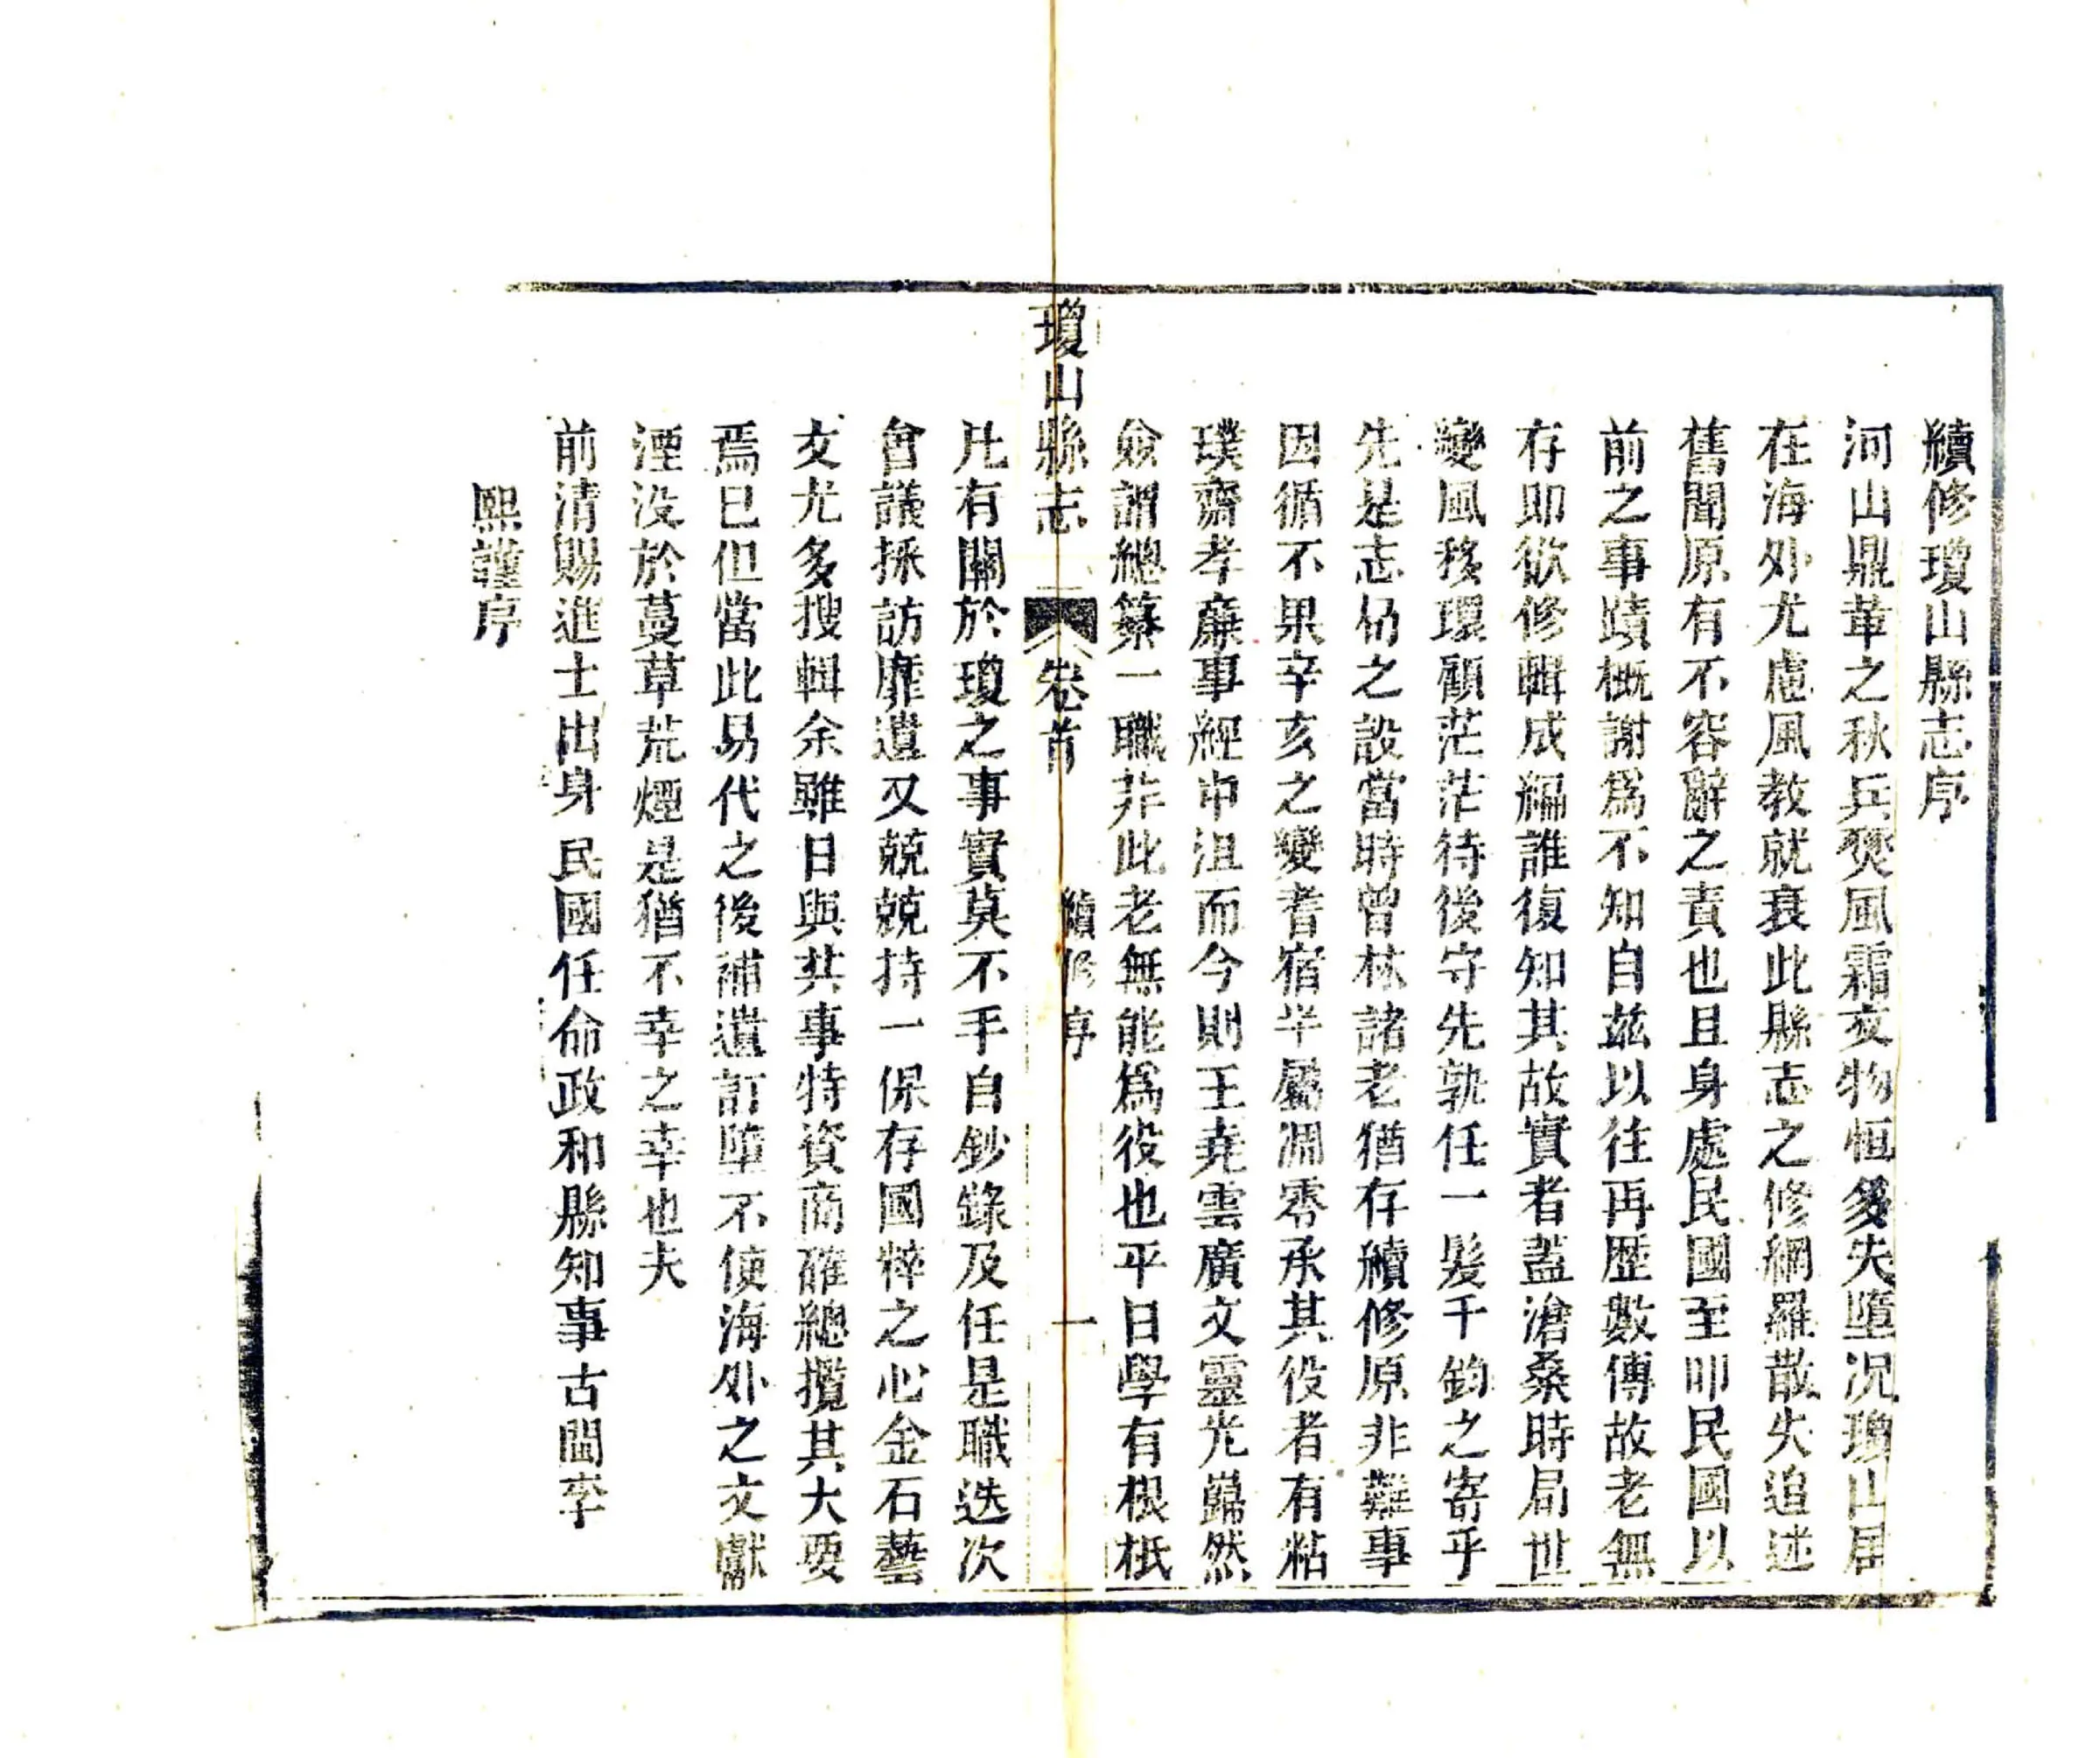 續修瓊山縣志序
河山鼎革之秋兵燹風霜文物恒多失墮况瓊山居
在海外尤慮風教就衰此縣志之修網羅散失追述
舊聞原有不容辭之責也且身處民國至叩民國以
前之事蹟概謝爲不知自兹以往再歷數傳故老無
存即欲修輯成編誰復知其故實者蓋滄桑時局世
變風移環顧茫茫待後守先孰任一髮千鈞之寄乎
先是志局之設當時曾林諸老猶存續修原非難事
因循不果辛亥之變耆宿半屬凋零承其役者有粘
璞齋孝廉事經中沮而今則王堯雲廣文靈光巋然
僉謂總纂一職非此老無能爲役也平日學有根柢
瓊山縣志 卷首 續修序 一
凡有關於瓊之事實莫不手自鈔錄及任是職迭次
會議採訪靡遺又兢兢持一保存國粹之心金石藝
文尤多搜輯余雖日與共事特資商確總攬其大要
焉已但當此易代之後補遺訂墜不使海外之文獻
湮没於蔓草荒煙是猶不幸之幸也夫
前清賜進士出身民國任命政和縣知事古閩李
熙謹序